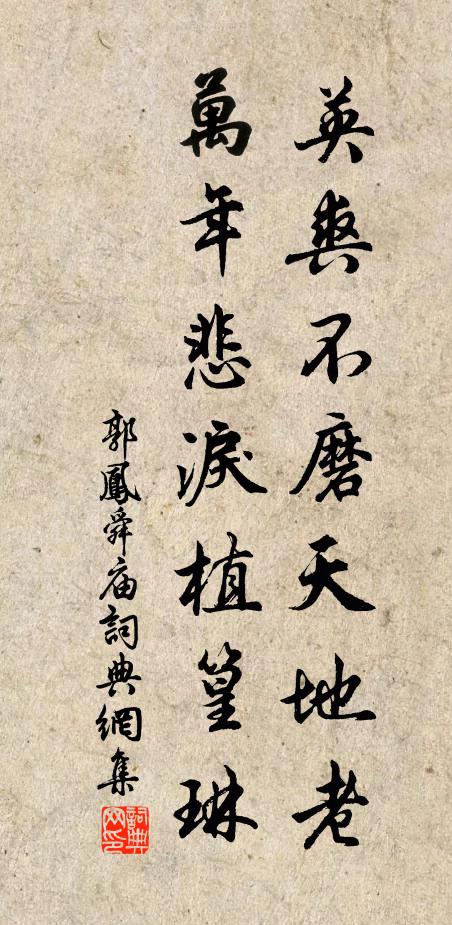 英爽不磨天地老
萬年悲淚植篁琳
郭鳳舜庙詞典網集
詞典网印